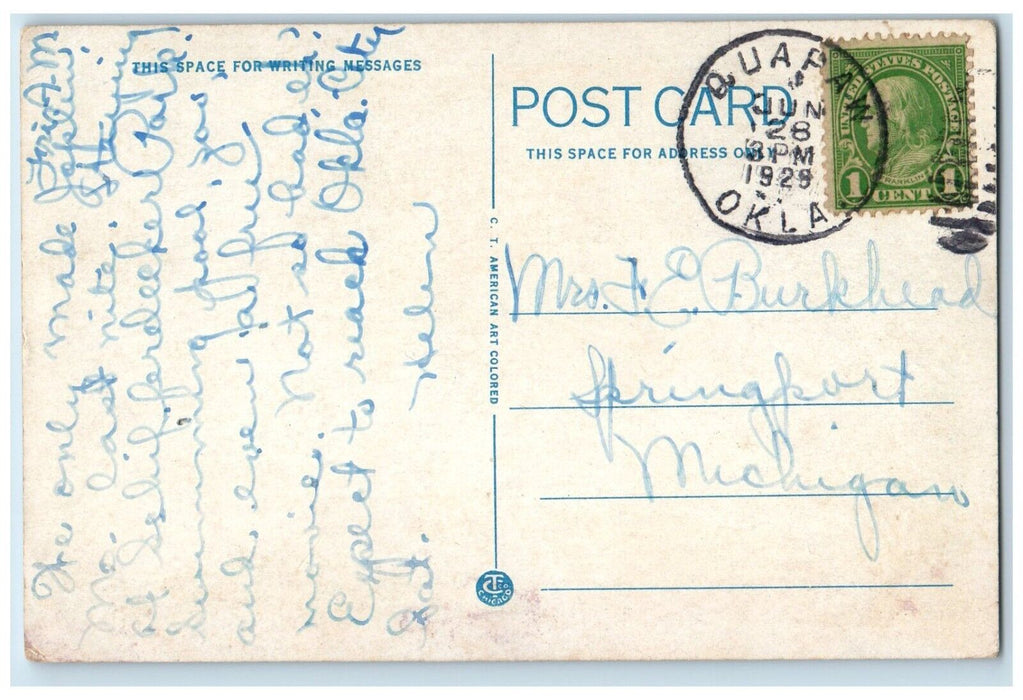 Fri. A.M.
We only made Joplin
Mo. last nite. Staying
at Schifferdecker Park.
Swimming pool, zoo
and, even a free
movie. Not so bad eh?
Expect to reach Okla. City
Sat.
Helen
THIS SPACE FOR WRITING MESSAGES
C. T. AMERICAN ART COLORED
CTCO
CHICAGO
POST CARD
THIS SPACE FOR ADDRESS ONLY
QUAPAW
JUN
28
PM
1929
OKLA
UNITED STATES POSTAGE
FRANKLIN
1 CENT 1
Mrs. F. E. Burkhead
Springport
Michigan